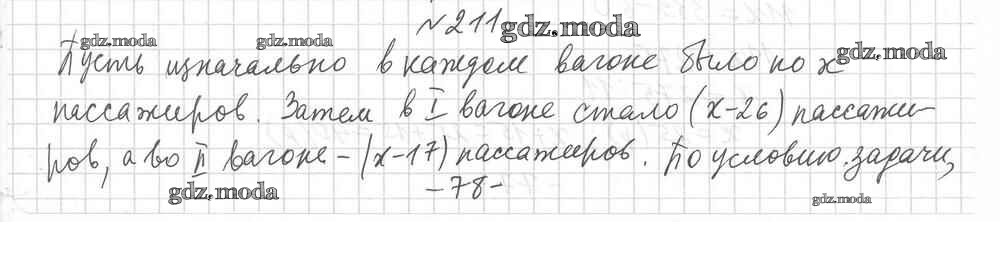 №211 gdz.moda
gdz.moda gdz.moda gdz.moda
Пусть изначально в каждом вагоне было по x
пассажиров. Затем в I вагоне стало (x-26) пассажи-
ров, а во II вагоне - (x-17) пассажиров. По условию задачи,
gdz.moda -78- gdz.moda